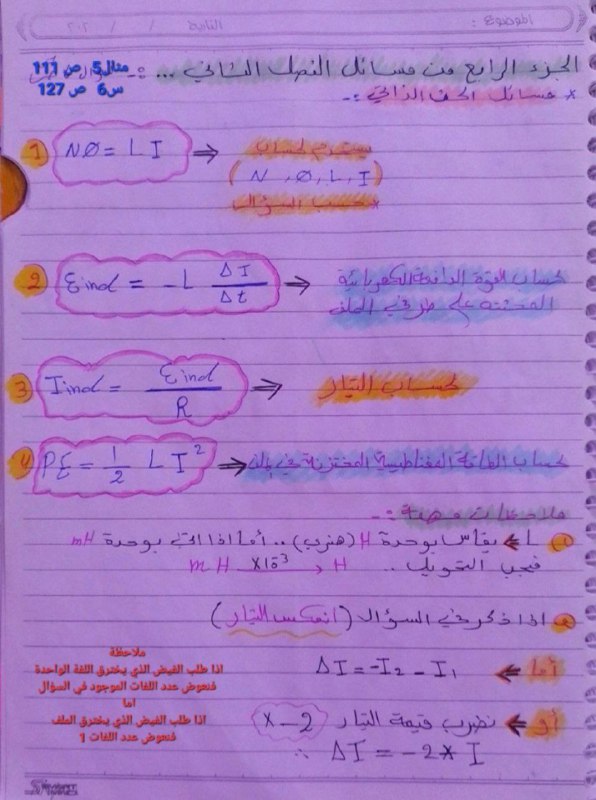 الموضوع: التاريخ / / ٢٠٢
الجزء الرابع من مسائل الفصل الثاني ... :-
مثال5 ص 111
س6 ص 127
* مسائل الحث الذاتي :-
1 NØ = L I ⇒ يستخدم لحساب
( N , Ø , L , I )
* حسب السؤال
2 Ɛind = - L ΔI / Δt ⇒ لحساب القوة الدافعة الكهربائية
المحتثة على طرفي الملف
3 Iind = Ɛind / R ⇒ لحساب التيار
4 PE = 1/2 L I² ⇒ لحساب الطاقة المغناطيسية المختزنة في
ملاحظات مهمة :-
L ⇐ يقاس بوحدة H (هنري) .. أما اذا اتى بوحدة mH
فيجب التحويل .. mH ×10⁻³ → H
اذا ذكر في السؤال (انعكس التيار)
أما ⇐ ΔI = -I₂ - I₁
أو ⇐ نضرب قيمة التيار × -2
∴ ΔI = -2 * I
ملاحظة
اذا طلب الفيض الذي يخترق اللفة الواحدة
فنعوض عدد اللفات الموجود في السؤال
اما
اذا طلب الفيض الذي يخترق الملف
فنعوض عدد اللفات 1